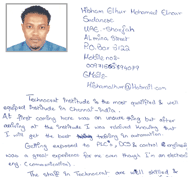 Hisham Elhar Mohamed Elnour
Sudanese
UAE - Sharjah
Al mina Street
P.O. Box 3122
Mobile no:-
GMail:-
Hishamalhar@Hotmail.com
Technocrat Institute is the most qualified & well
equiped Institute in Chennai - India.
At first coming here was an unsure thing but after
arriving at the Institute I was realized knowing that
I will get the best training in automation.
Getting exposed to PLC's, DCS & control & engineering
was a great experience for me even though I'm an electronic
eng. (communication).
The staff in Technocrat are well skilled &